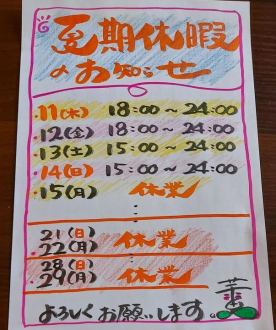 夏期休暇
のお知らせ
・11(木) 18:00～24:00
・12(金) 18:00～24:00
・13(土) 15:00～24:00
・14(日) 15:00～24:00
・15(月) 休業
21(日)
22(月) 休業
28(日)
29(月) 休業
よろしくお願いします。